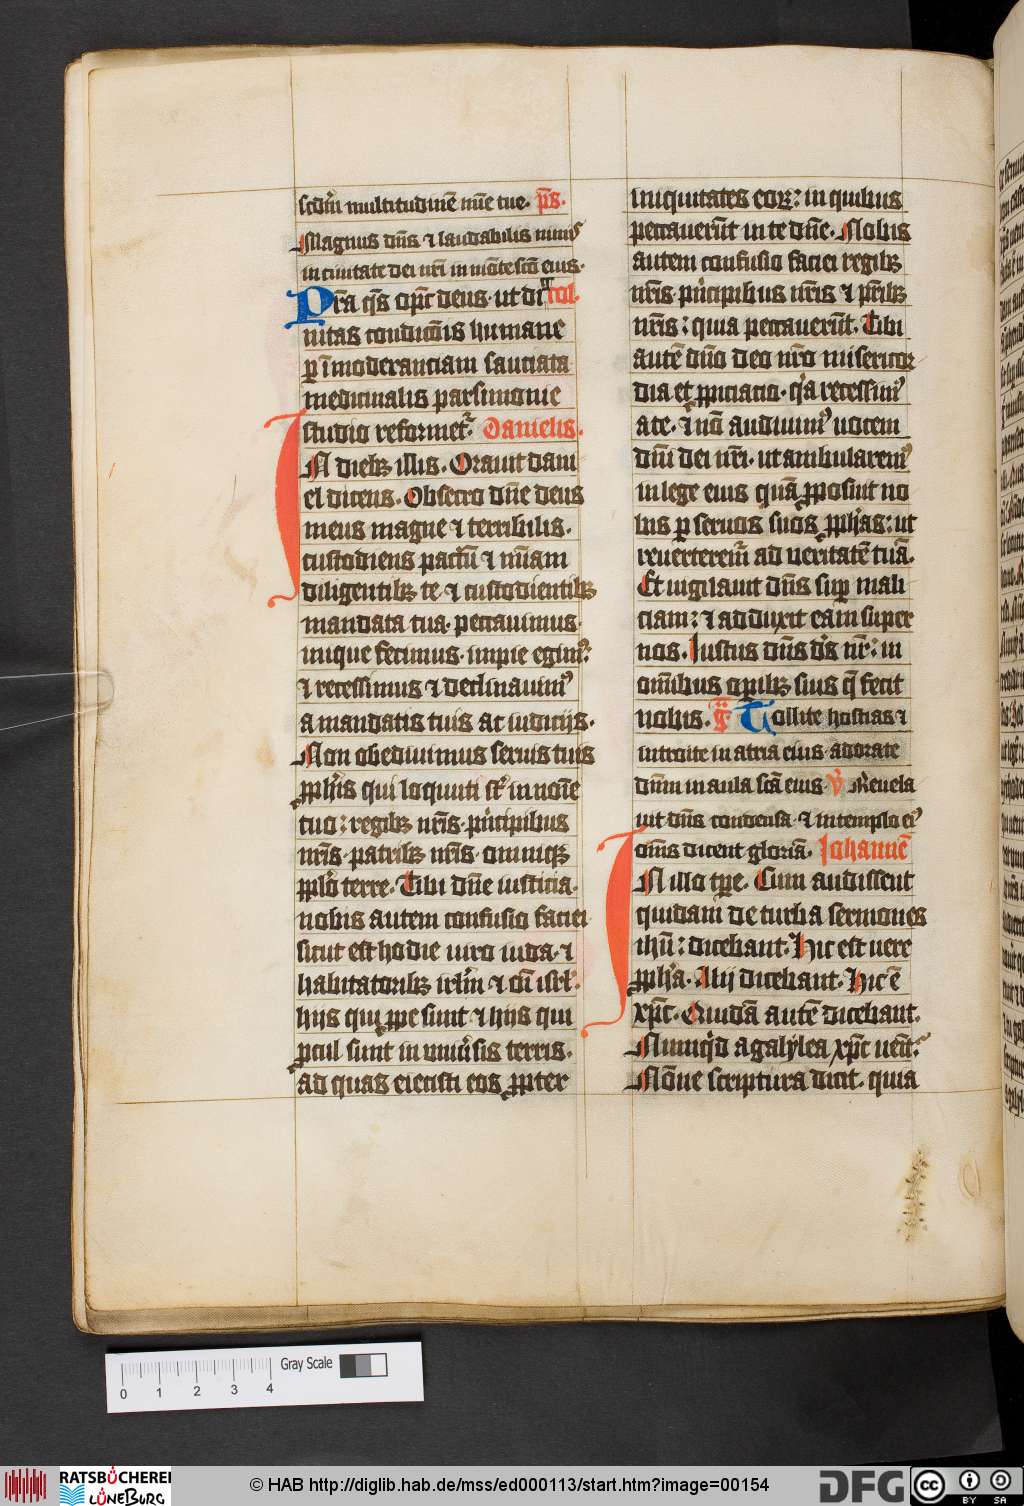 scdm̄ multitudinē mīe tue. p̄s.
Magnus dn̄s ⁊ laudabilis nimis
in ciuitate dei nr̄i in mōte scō eius.
Pr̄a qs̄ op̄c deus. ut di col.
nitas condicōis humane
ꝑ īmoderanciam sauciata
medicinalis parsimonie
studio reformet᷑. Danielis.
IN diebꝫ illis. Orauit dani
el dicens. Obsecro dn̄e deus
meus magne ⁊ terribilis.
custodiens pactū ⁊ mīam
diligentibꝫ te ⁊ custodientibꝫ
mandata tua. peccauimus.
inique fecimus. impie egimꝰ.
⁊ recessimus ⁊ declinauimꝰ
a mandatis tuis ac iudicijs.
Non obediuimus seruis tuis
ꝓph̄is qui locuti st̄ in noīe
tuo: regibꝫ nr̄is. principibus
nr̄is. patribꝫ nr̄is. omniqꝫ
pplō terre. Tibi dn̄e iusticia.
nobis autem confusio faciei
sicut est hodie uiro iuda. ⁊
habitatoribꝫ irl̄m ⁊ oī isrl̄.
hijs qui ꝓpe sunt ⁊ hijs qui
procul sunt in uniūsis terris.
ad quas eiecisti eos ꝓpter
iniquitates eoꝝ: in quibus
peccauerūt in te dn̄e. Nobis
autem confusio faciei regibꝫ
nr̄is. principibus nr̄is ⁊ pr̄ibꝫ
nr̄is: quia peccauerūt. Tibi
autē dn̄o deo nr̄o misericor
dia et ꝓpiciacio. qꝛa recessimꝰ
a te. ⁊ nō audiuimꝰ uocem
dn̄i dei nr̄i. ut ambularemꝰ
in lege eius quā ꝓposuit no
bis ꝑ seruos suos ꝓph̄as: ut
reuerteremr̄ ad ueritatē tuā.
Et uigilauit dn̄s sup̄ mali
ciam: ⁊ adduxit eam super
nos. Iustus dn̄s ds̄ nr̄: in
om̄ibus opibꝫ suis q̄ fecit
nobis. g̃ Tollite hostias ⁊
introite in atria eius. adorate
dn̄m in aula scā eius. v̄ Reuela
uit dn̄s condensa. ⁊ in templo eiꝰ
om̄s dicent gloriā. Johannē
IN illo tp̄e. Cum audissent
quidam de turba sermones
ihū: dicebant. Hic est uere
ꝓph̄a. Alij dicebant. Hic ē
xp̄c. Quidā autē dicebant.
Numqͥd a galylea xp̄c uenit.
Nōne scriptura dicit. quia
0 1 2 3 4
Gray Scale
RATSBÜCHEREI
LÜNEBURG
© HAB http://diglib.hab.de/mss/ed000113/start.htm?image=00154
DFG
cc
BY SA